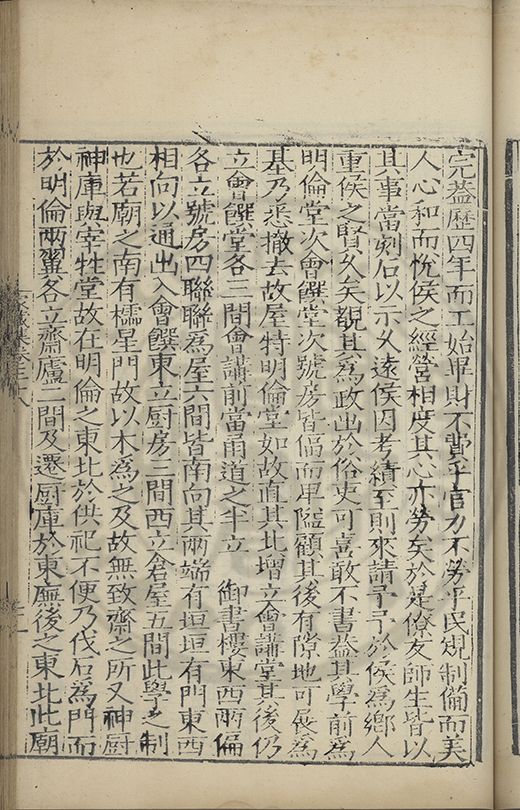 完葢歷四年而工始畢財不費乎官力不勞乎民規制備而美
人心和而悅侯之經營相度其心亦勞矣於是僚友師生皆以
其事當刻石以示久遠侯因考績至則來請予予於侯為鄉人
重侯之賢久矣覩其為政出於俗吏可喜敢不書葢其學前為
明倫堂次會饌堂次號房皆偪而卑隘顧其後有隙地可展為
基乃悉撤去故屋特明倫堂如故直其北增立會講堂其後仍
立會饌堂各三間會講前當甬道之半立 御書樓東西兩偏
各立號房四聯聯為屋六間皆南向其兩端有垣垣有門東西
相向以通出入會饌東立厨房三間西立倉屋五間此學之制
也若廟之南有櫺星門故以木為之及故無致齋之所又神厨
神庫與宰牲堂故在明倫之東北於供祀不便乃伐石為門而
於明倫兩翼各立齋廬二間及遷厨庫於東廡後之東北此廟